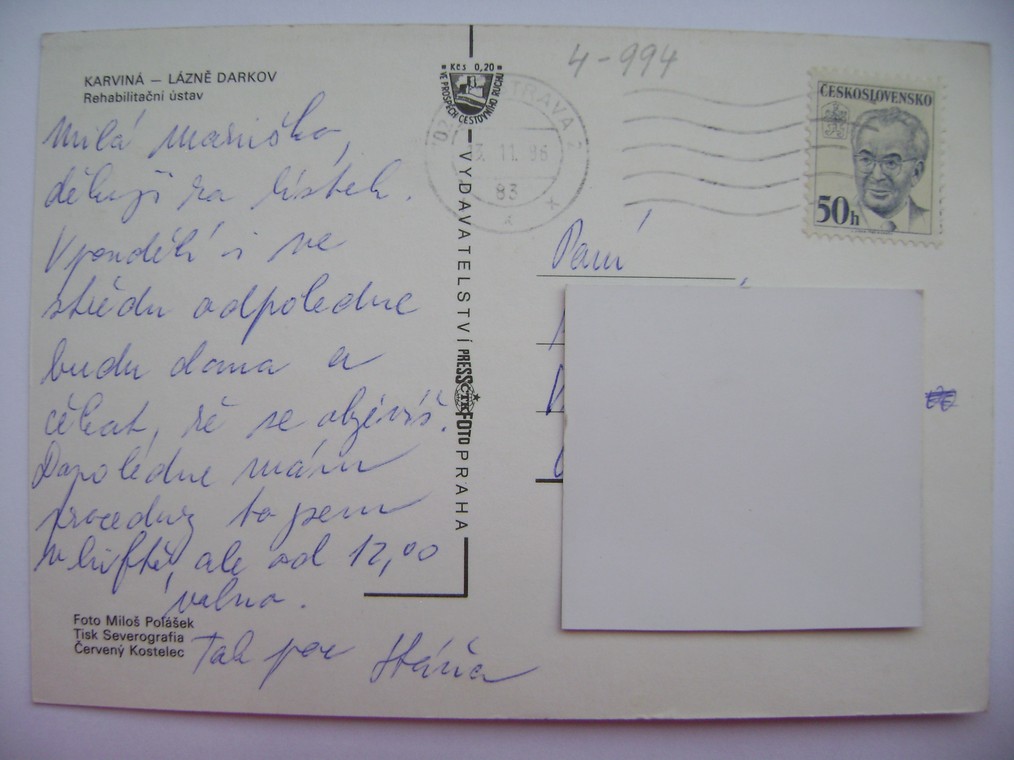 KARVINÁ — LÁZNĚ DARKOV
Rehabilitační ústav
Milá Maruško,
děkuji za lístek.
V pondělí i ve
středu odpoledne
budu doma a
čekat, že se objevíš.
Dopoledne mám
procedury to jsem
v luftě, ale od 12,00
volno.
Tak pac Stáňa
Foto Miloš Polášek
Tisk Severografia
Červený Kostelec
Kčs 0,20
VE PROSPĚCH CESTOVNÍHO RUCHU
VYDAVATELSTVÍ PRESSFOTO PRAHA
ČTK
4-994
OSTRAVA 2
11.86
83
a
ČESKOSLOVENSKO
50h
Paní